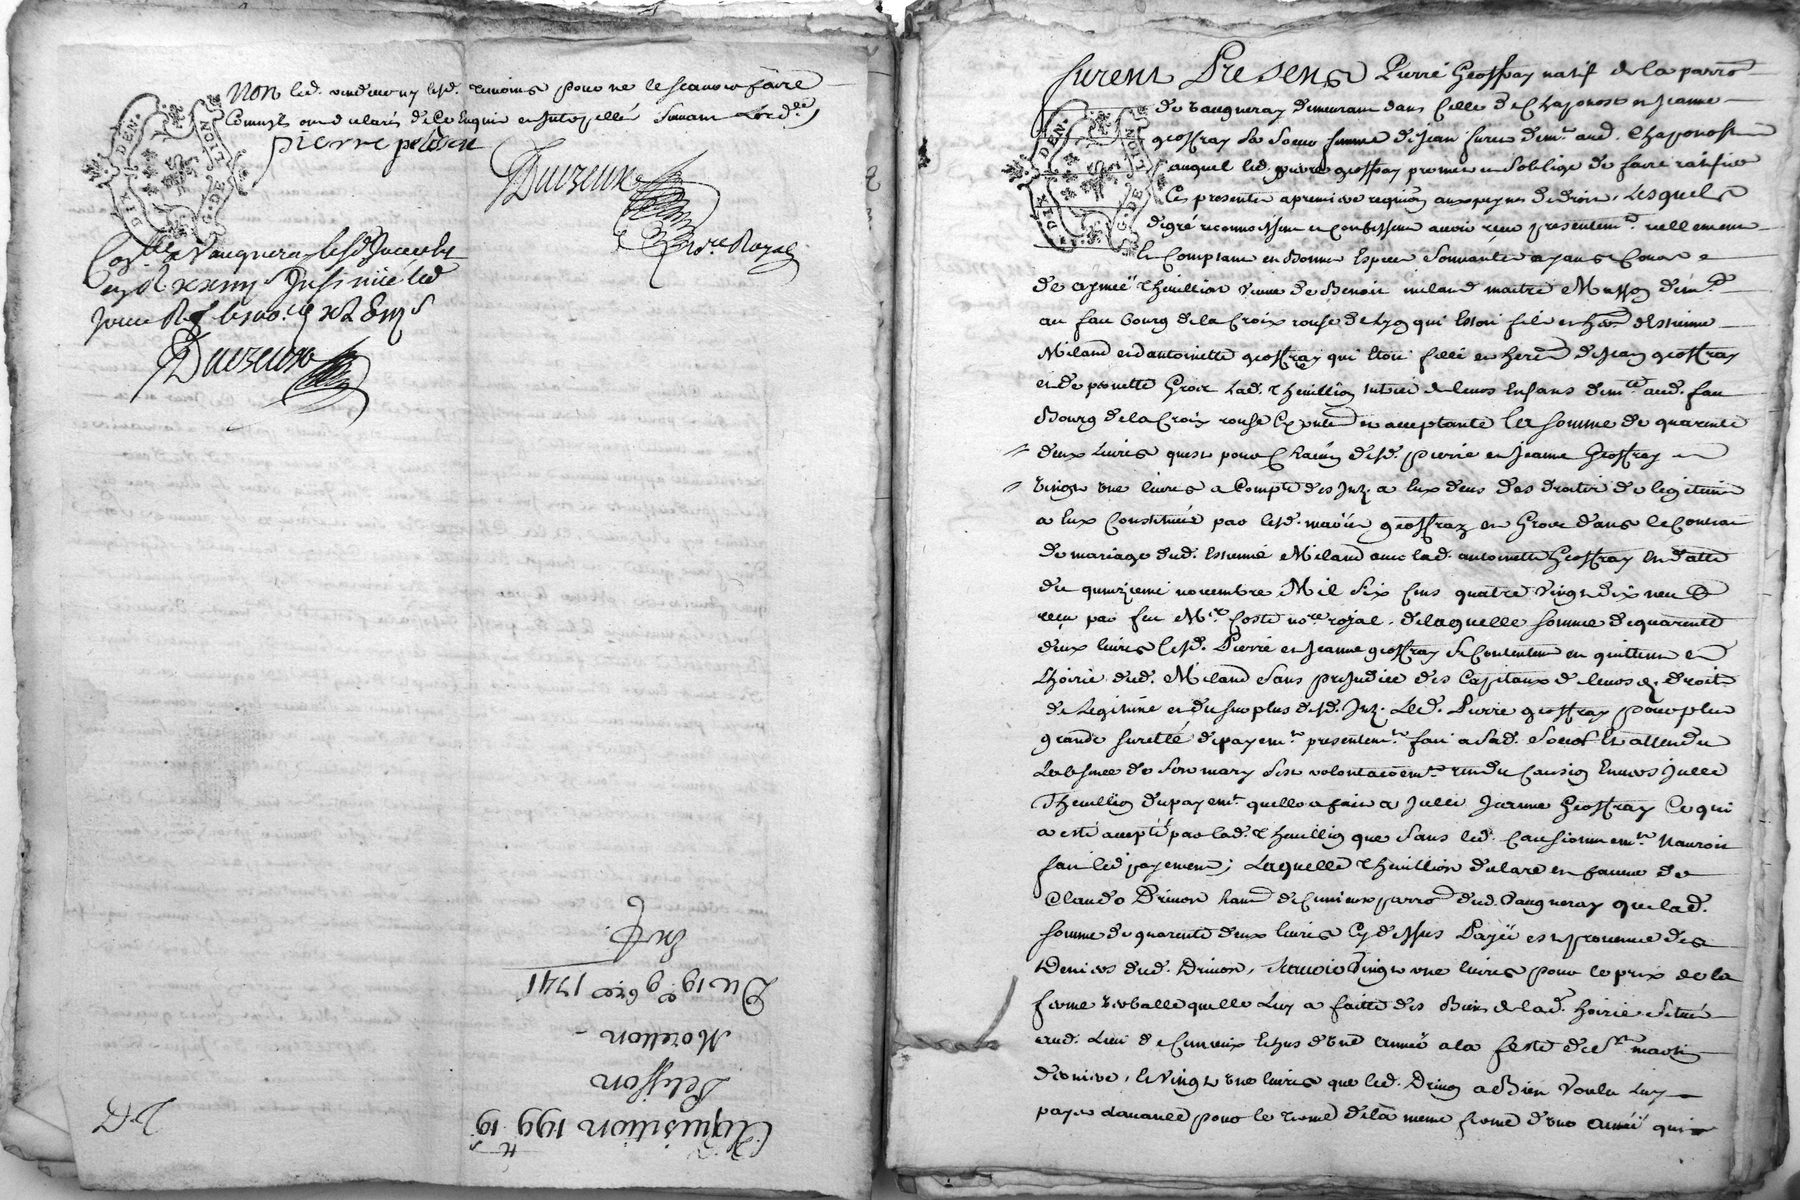 non led. vendeur ny lesd. temoins pour ne le scavoir faire
Comm'ils ont declarés de ce Enquis et Interpellés suivant L'ord.ce
pierre pelisson
Duvzeux
no.re Royal
DIX DEN. G. DE LION
Con.lle a Vaugneray le
Duvzeux
Acquisition 199 tt 19 s
Pelisson
Morellon
Du 19 e 9bre 1741
Exp.
furent Presens Pierre Geoffray natif de la parroisse
de vaugneray demeurant dans Celle de Chaponost et jeanne
geoffray sa soeur femme de jean demt. aud. Chaponost
auquel led. pierre geoffray promet et s'oblige de faire ratifier
Ces presentes a premiere requion aux peynes de droit, Lesquels
de gré reconnoissent et Confessent avoir reçu presentemt. reellement
Et Comptant en Bonnes Especes sonnantes ayans Cours
de aymée Theuillion veuve de Benoit milan maitre Masson demte.
au faux bourg de la Croix rousse de Lyon qui Estoit fils et her. d'Estienne
Milan et d'antoinette geoffray qui Etoit fille et herre de jean geoffray
et de pernette Groz Lad. Theuillion tutrice de leurs Enfans demte. aud. faux
Bourg de la Croix rousse presente et acceptante La somme de quarente
deux Livres quest pour Chacun desd. pierre et jeanne Geoffray
vingt une livres a Compte des Int. a Eux deus des droits de legitime
a Eux Constitués par lesd. mariés geoffray et Groz dans le Contrat
de mariage dud. Estienne Milan avec lad. antoinette Geoffray En datte
du quinzieme novembre Mil six Cens quatre vingt dix neuf
reçu par feu Me. Coste nore. royal, de laquelle somme de quarente
deux livres lesd. Pierre et jeanne geoffray se Contentent et quittent
L'hoirie dud. Milan sans prejudice des Capitaux de leursd. droits
de Legitime et du surplus desd. Int. Led. Pierre geoffray pour plus
grande sureté du payemt. presentemt. fait a sad. soeur Et attendu
L'absence de son mary s'est volontairemt. rendu Caution Envers jcelle
Theuillion du payemt. quelle a fait a jcelle jeanne Geoffray Ce qui
a esté accepté par lad. Theuillion que sans led. Cautionnemt. N'auroit
fait led. payement; Laquelle Theuillion declare en faveur de
Claude Drivon habt. de Cunieux parroisse dud. Vaugneray que lad.
somme de quarente deux livres Cy dessus Payée est provenue des
Deniers dud. Drivon, scavoir vingt une livres pour le prix de la
ferme verballe quelle Luy a faitte des Biens de lad. hoirie situés
aud. Lieu de Cunieux Echus d'une année a la feste de St. martin
derniere, Et vingt une livres que led. Drivon a Bien voulu Luy
payer d'avance pour le terme de la meme ferme d'une année qui